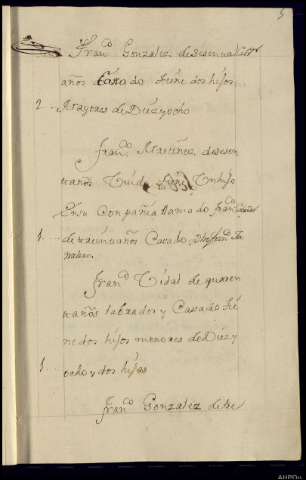 5
Fran.co Gonzalez de sesenta
años Casado tiene dos hijos
2 Mayores de Diez y ocho
Fran.co Martinez de sesen
ta años Viudo tiene Un hijo
En su Compañia llamado Fran.co
1 de veinte años Casado
Fran.co Vidal de quaren
ta años labrador y Casado tie
ne dos hijos menores de Diez y
1 ocho y dos hijas
Fran.co Gonzalez de tre
AHPOu